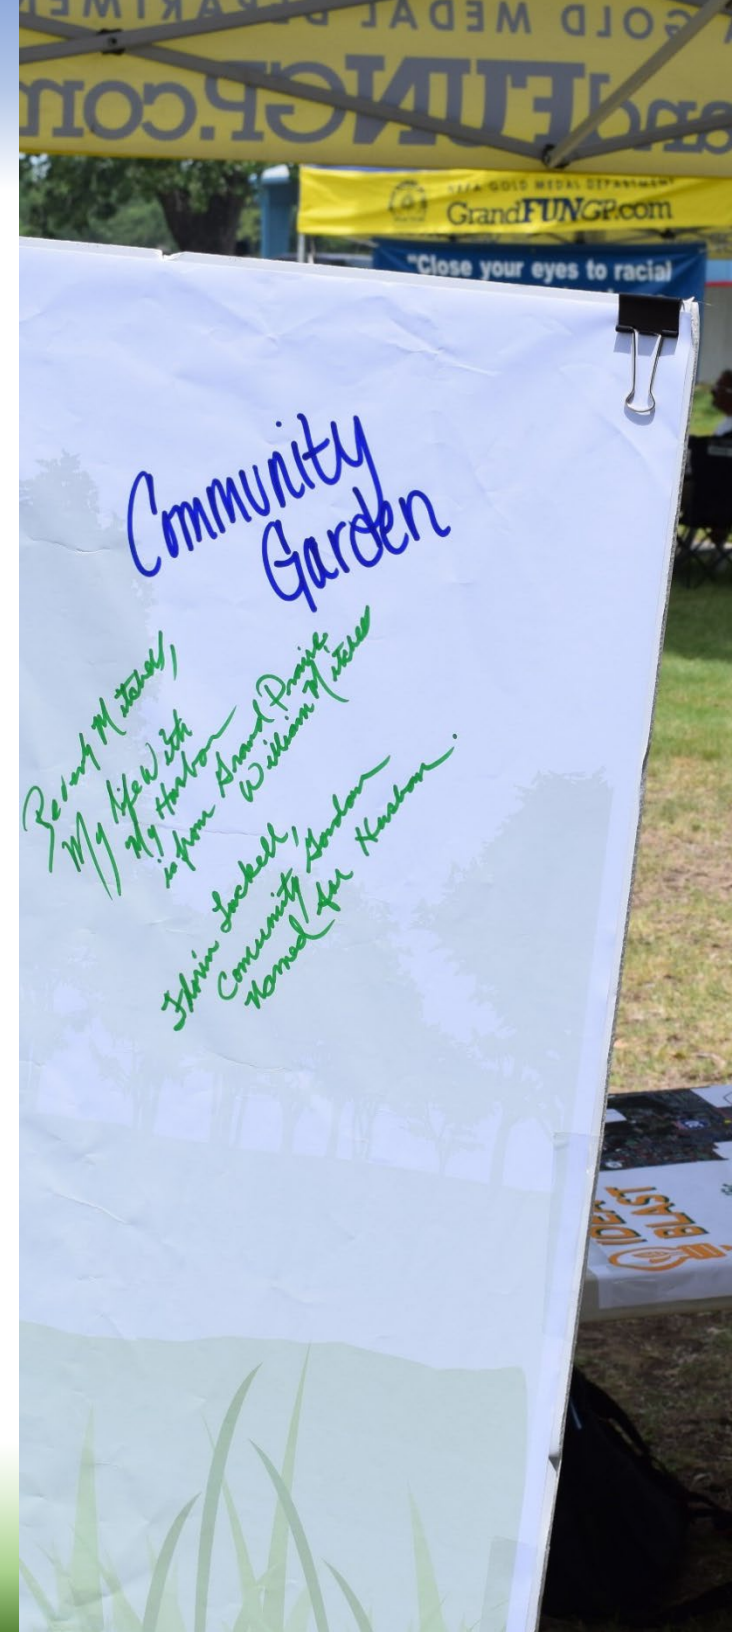 A GOLD MEDAL DEPARTMEN
andFUNGP.com
NRPA GOLD MEDAL DEPARTMENT
GrandFUNGP.com
"Close your eyes to racial
Community
Garden
Beverly Mitchell,
My life With
My Husban
is from Grand Prairie
William Mitchell
Luckell,
Community Gordon
Named for Husban.
IDEA
BLAST